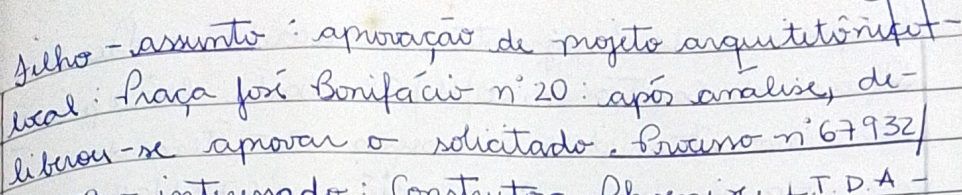 filho - assunto: aprovação de projeto arquitetônico -
local: Praça José Bonifácio nº 20: após análise, de-
liberou-se aprovar o solicitado. Processo nº 67932/
interessado: LTDA -